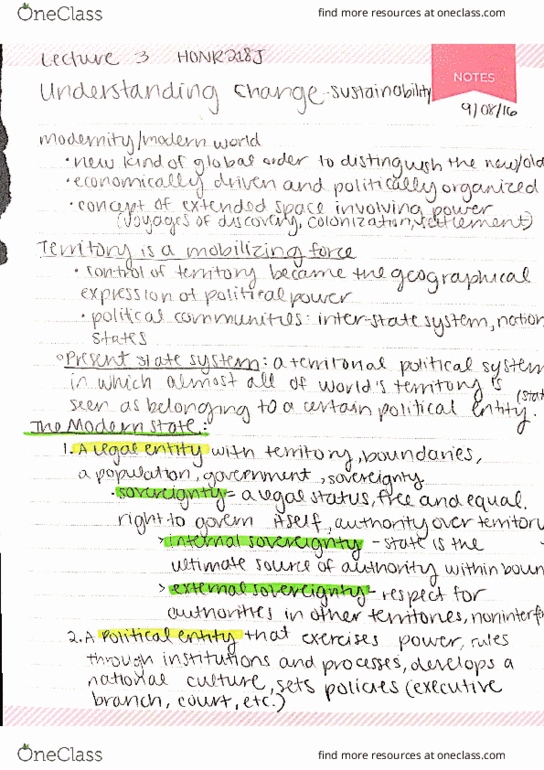 OneClass
find more resources at oneclass.com
Lecture 3 HONR218J
NOTES
Understanding Change - sustainability
9/08/16
modernity/modern world
• new kind of global order to distinguish the new/old
• economically driven and politically organized
• concept of extended space involving power
(voyages of discovery, colonization, settlement)
Territory is a mobilizing force
• control of territory became the geographical
expression of political power
• political communities: inter-state system, nation
states
Present state system: a territorial political system
in which almost all of world's territory is
(stat
seen as belonging to a certain political entity.
The Modern State:
1. A legal entity with territory, boundaries,
a population, government, sovereignty
• sovereignty = a legal status, free and equal.
right to govern itself, authority over territory
> internal sovereignty - state is the
ultimate source of authority within boun
> external sovereignty - respect for
authorities in other territories, noninterf
2. A political entity that exercises power, rules
through institutions and processes, develops a
national culture, sets policies (executive
branch, court, etc.)
OneClass
find more resources at oneclass.com